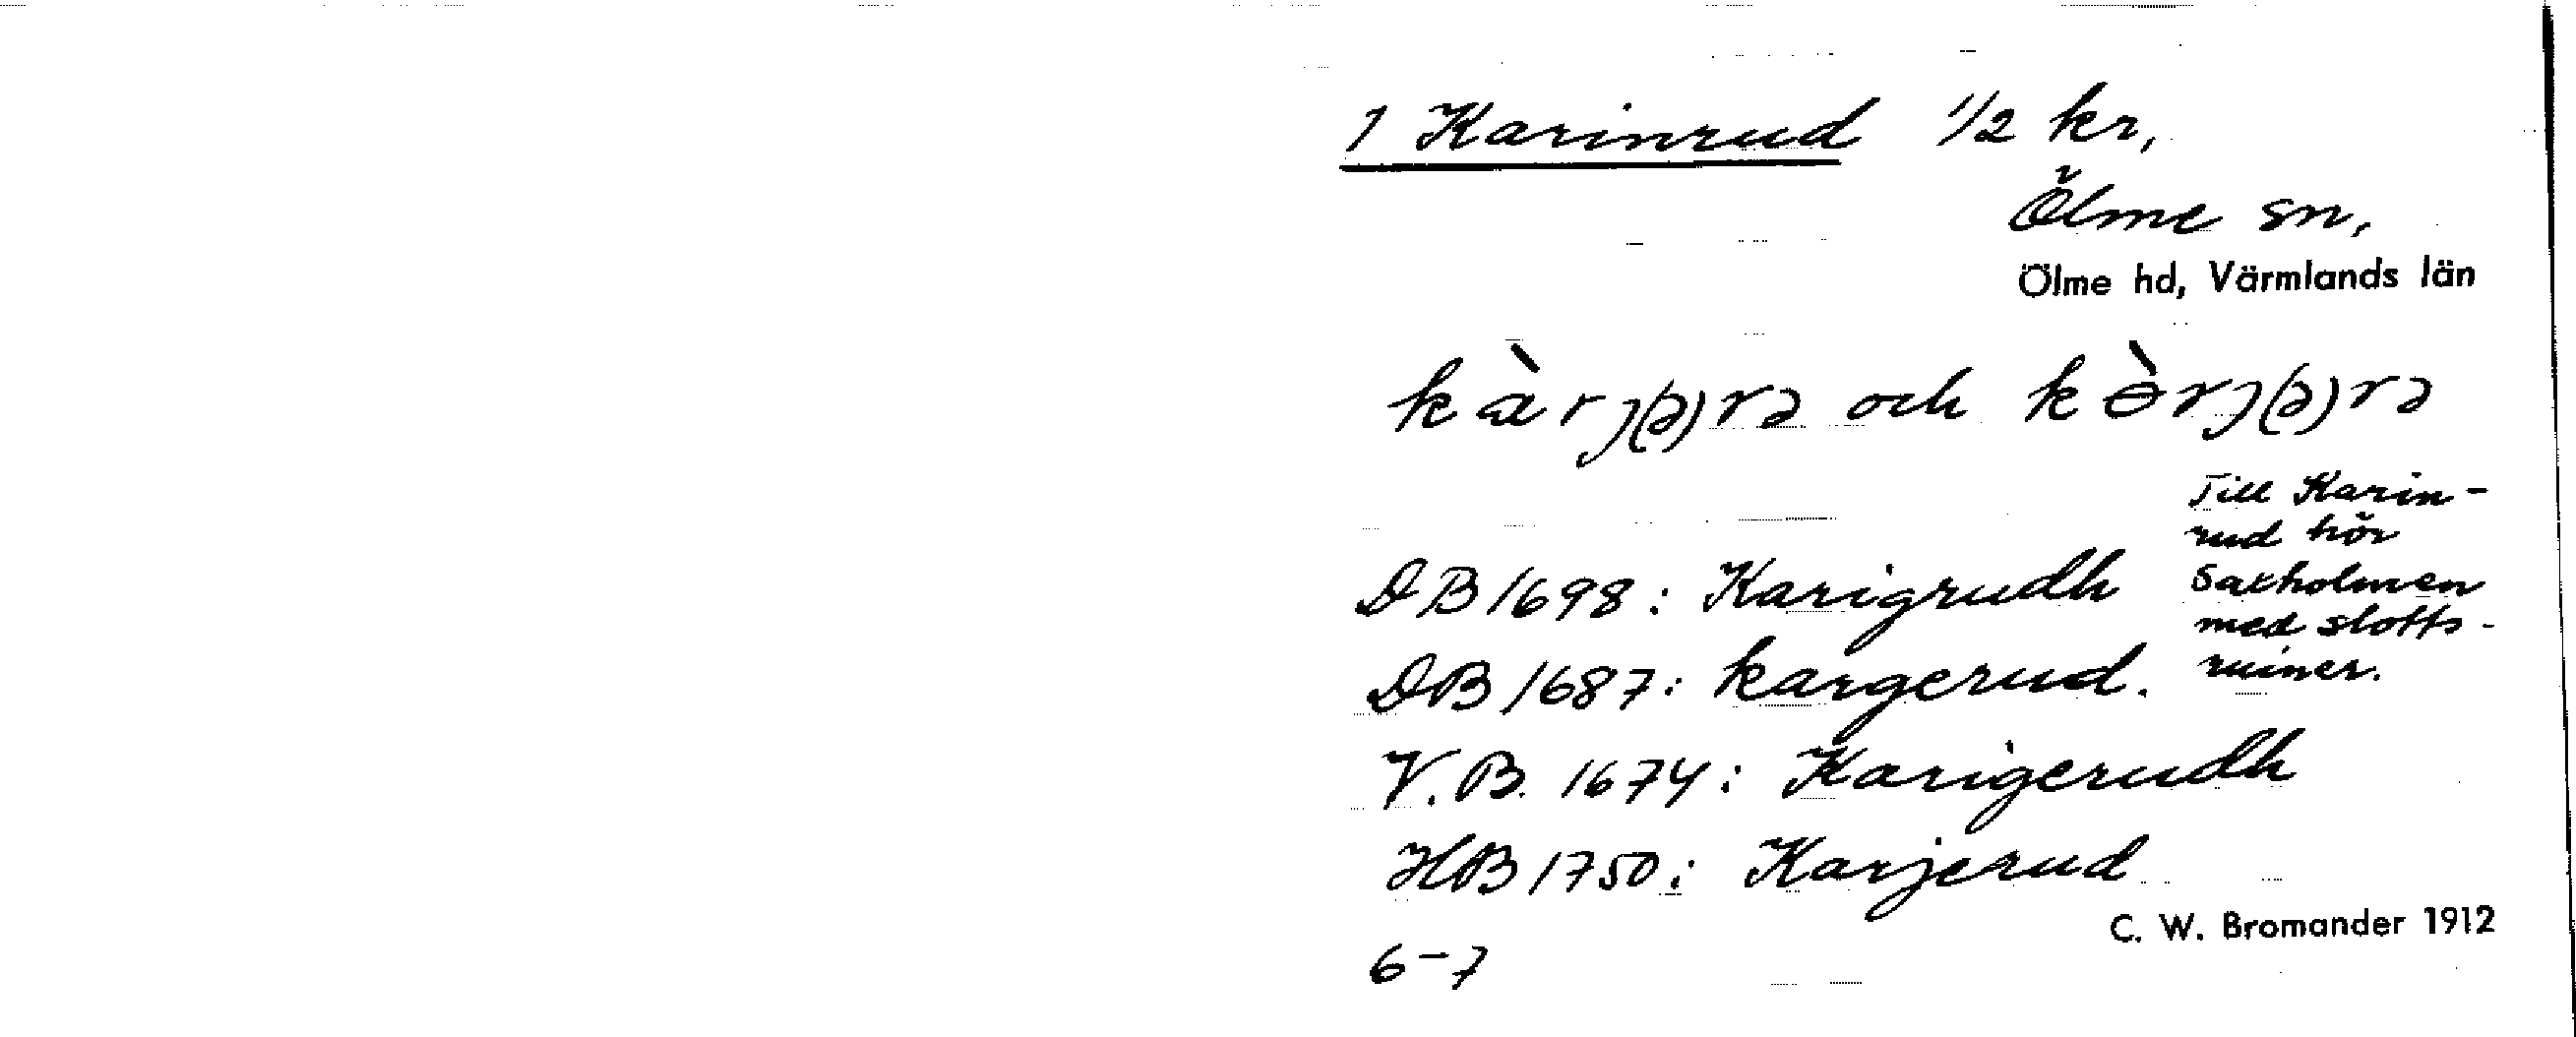 1 Karinrud 1/2 kr,
Ölme sn,
Ölme hd, Värmlands län
kàrȷ(ə)rə och kɵ̀rȷ(ə)rə
Till Karin-
rud hör
Saxholmen
med slotts-
ruiner.
DB 1698: Karigrudh
DB 1687: kargerud.
V.B. 1674: Karigerudh
HB 1750: Karjerud
C. W. Bromander 1912
6-7